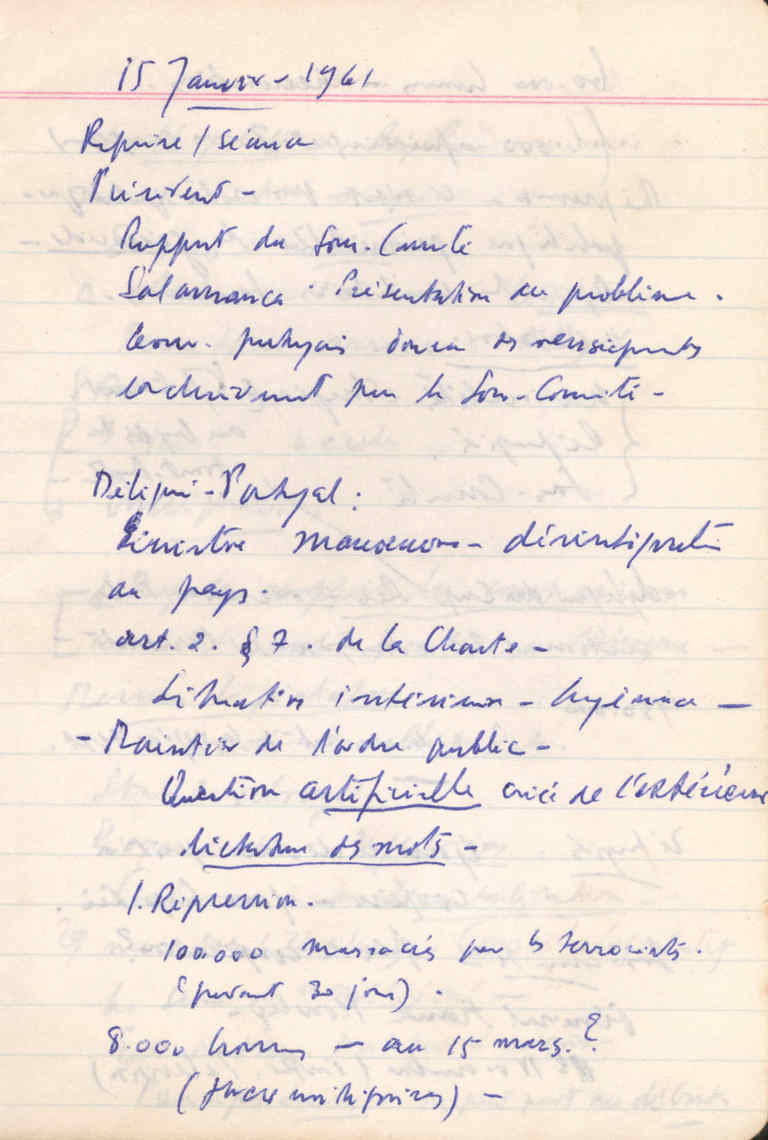 15 Janvier - 1961
Reprise / séance
Président -
Rapport du Sous-Comité
Salamanca : Présentation du problème.
Gouv. portugais donna des renseignements
exclusivement pour le Sous-Comité -
Délégué - Portugal :
Sinistre manœuvre - désintégration
du pays.
art. 2. § 7. de la Charte -
Situation intérieure - Angérence -
- Maintien de l'ordre public -
Question artificielle créée de l'extérieur
dictature des mots -
1. Répression.
100.000 massacrés par les terroristes.
(pendant 30 jours).
8.000 hommes - au 15 mars.?
(forces indigènes) -